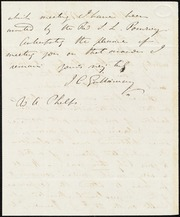 which meeting I have been
invited by the Rev. S. L. Pomroy
Anticipating the pleasure of
meeting you on that occasion I
remain
Yours very truly
J. C.
A. A. Phelps